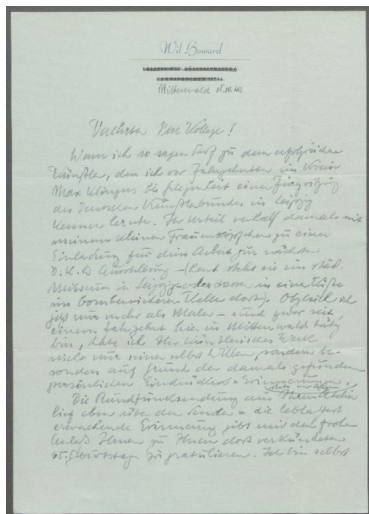 Wil Howard
Mittenwald
Verehrter Herr Kollege!
Wenn ich so sagen darf zu dem erfolgreichen
Künstler, den ich vor Jahrzehnten im Verein
Max Klingers bei Gelegenheit einer
des Deutschen Künstlerbundes in Leipzig
kennen lernte. Ihr Urteil verhalf damals mit
meinem kleinen Frauenköpfchen zu einer
Einladung für die Arbeit zur nächsten
D.K.B Ausstellung – (heut steht sie im städt.
Museum in Leipzig oder
im bombensicheren Keller dort). Obgleich ich
jetzt nur mehr als Maler – und zwar seit
einem Jahrzehnt hier in Mittenwald tätig
bin, habe ich Ihr künstlerisches Werk
nicht nur seiner selbst Willen, sondern be-
sonders auf Grund der damals gefundenen
persönlichen Eindrücke u. Erinnerungen
Die Rundfunksendung
lief eben über den Sender – die lebhafteste
erwachende Erinnerung gibt mir den frohen
Anlaß Ihnen zu Ihrem dort verkündeten
65. Geburtstag zu gratulieren. Ich bin selbst